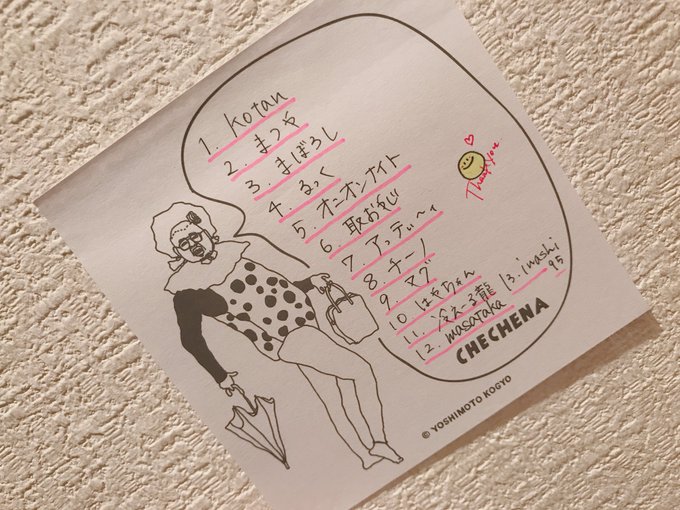 1. Kotan
2. まつや
3. まぼろし
4. るっく
5. オニオンナイト
6. 取おやじ
7. アンディ〜ィ
8. チーノ
9. マグ
10 はやちゃん
11. 冷え〜3龍
12. masataka
13. iwashi 95
Thank you
CHECHENA
© YOSHIMOTO KOGYO